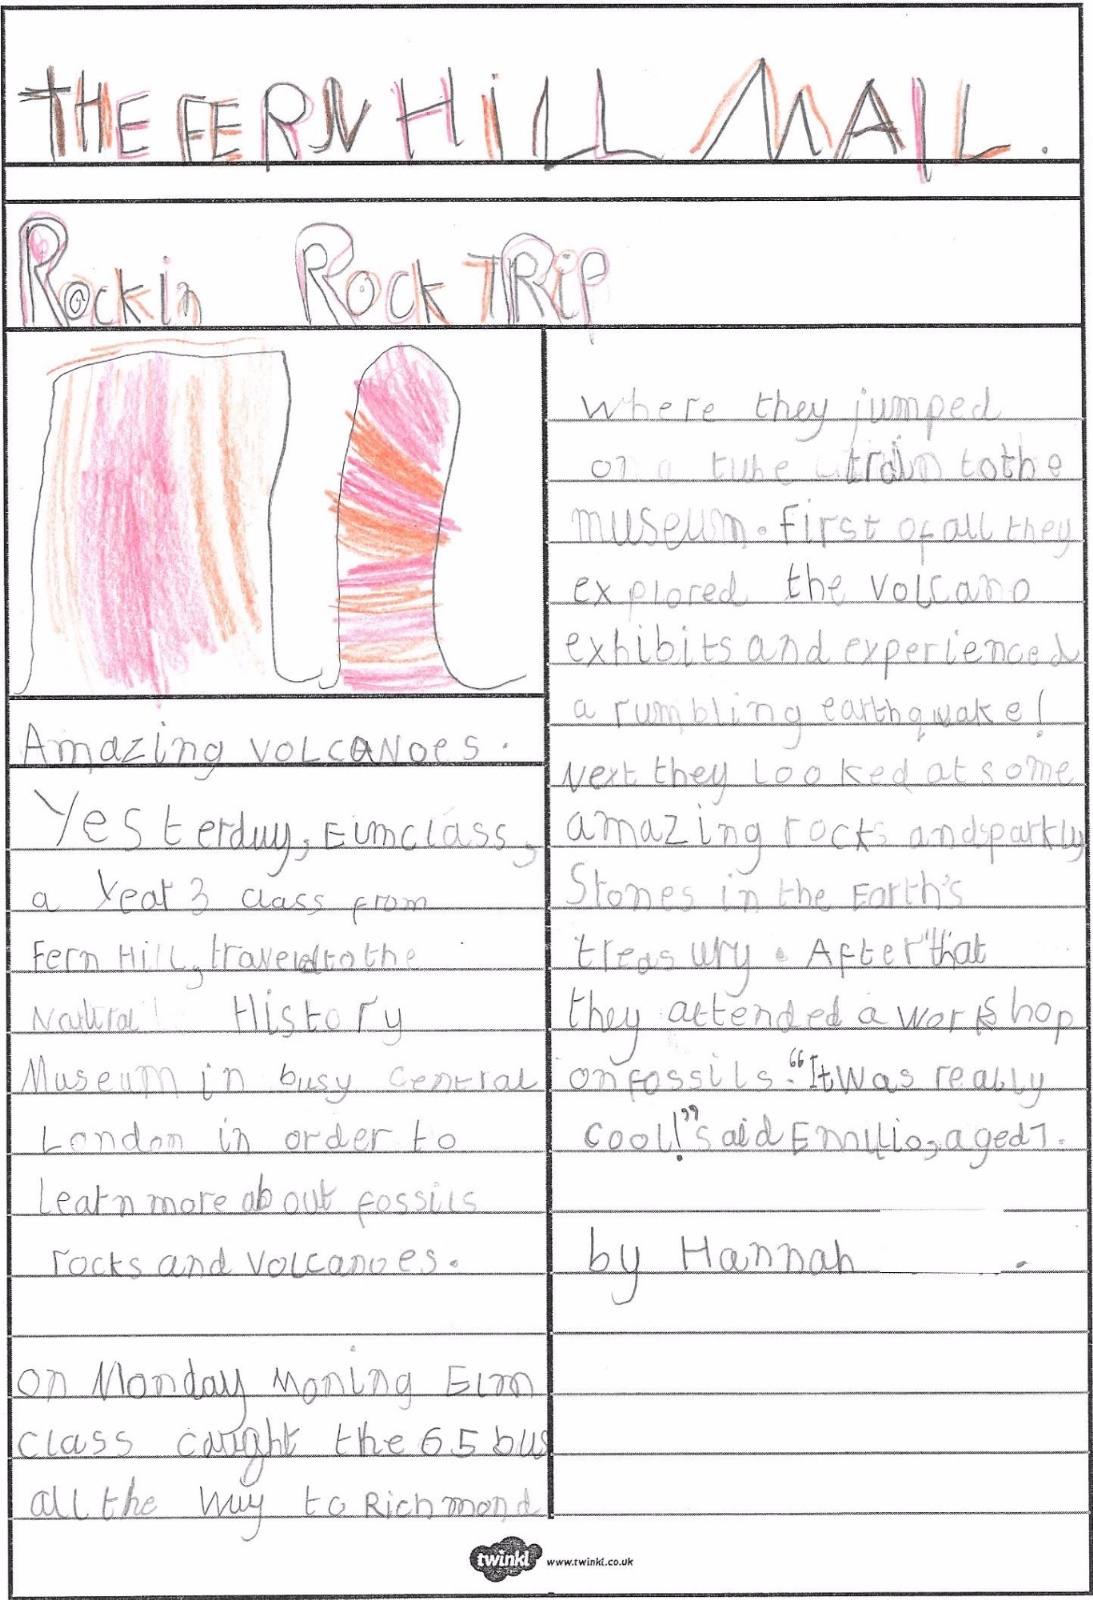 THE FERN HiLL MAIL.
Rockin Rock TRiP
Amazing volcanoes.
Yesterday, Eimclass,
a Year 3 class from
Fern Hill, traveled to the
Natural History
Museum in busy central
London in order to
learn more about fossils
rocks and volcanoes.
on Monday Moning Elm
class caught the 65 bus
all the way to Richmond
where they jumped
on a tube train to the
museum. First of all they
explored the volcano
exhibits and experienced
a rumbling earthquake!
Next they looked at some
amazing rocks and sparkly
Stones in the Earth's
treasury. After that
they attended a workshop
on fossils. "It was really
cool!" said Emilio, aged 7.
by Hannah .
twinkl www.twinkl.co.uk